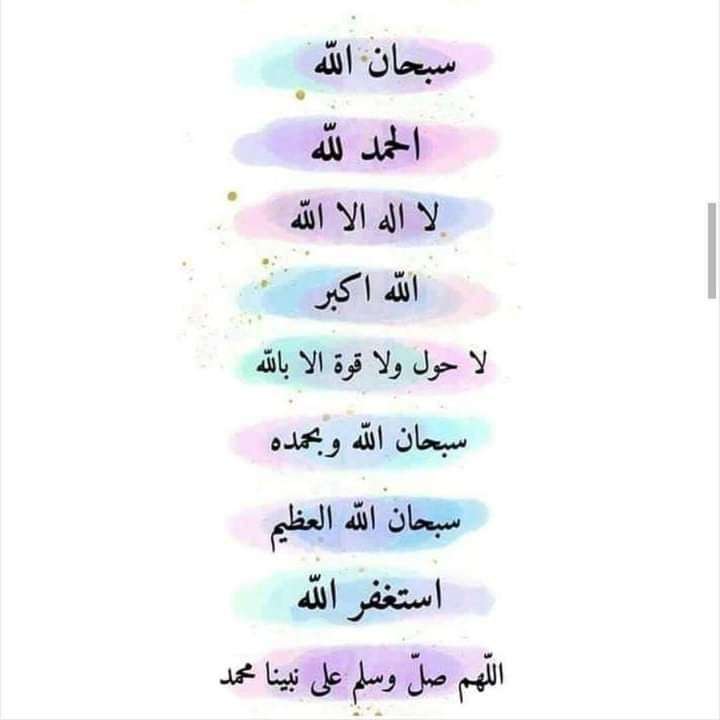 سبحان الله
الحمد لله
لا اله الا الله
الله اكبر
لا حول ولا قوة الا بالله
سبحان الله وبحمده
سبحان الله العظيم
استغفر الله
اللهم صلّ وسلم على نبينا محمد